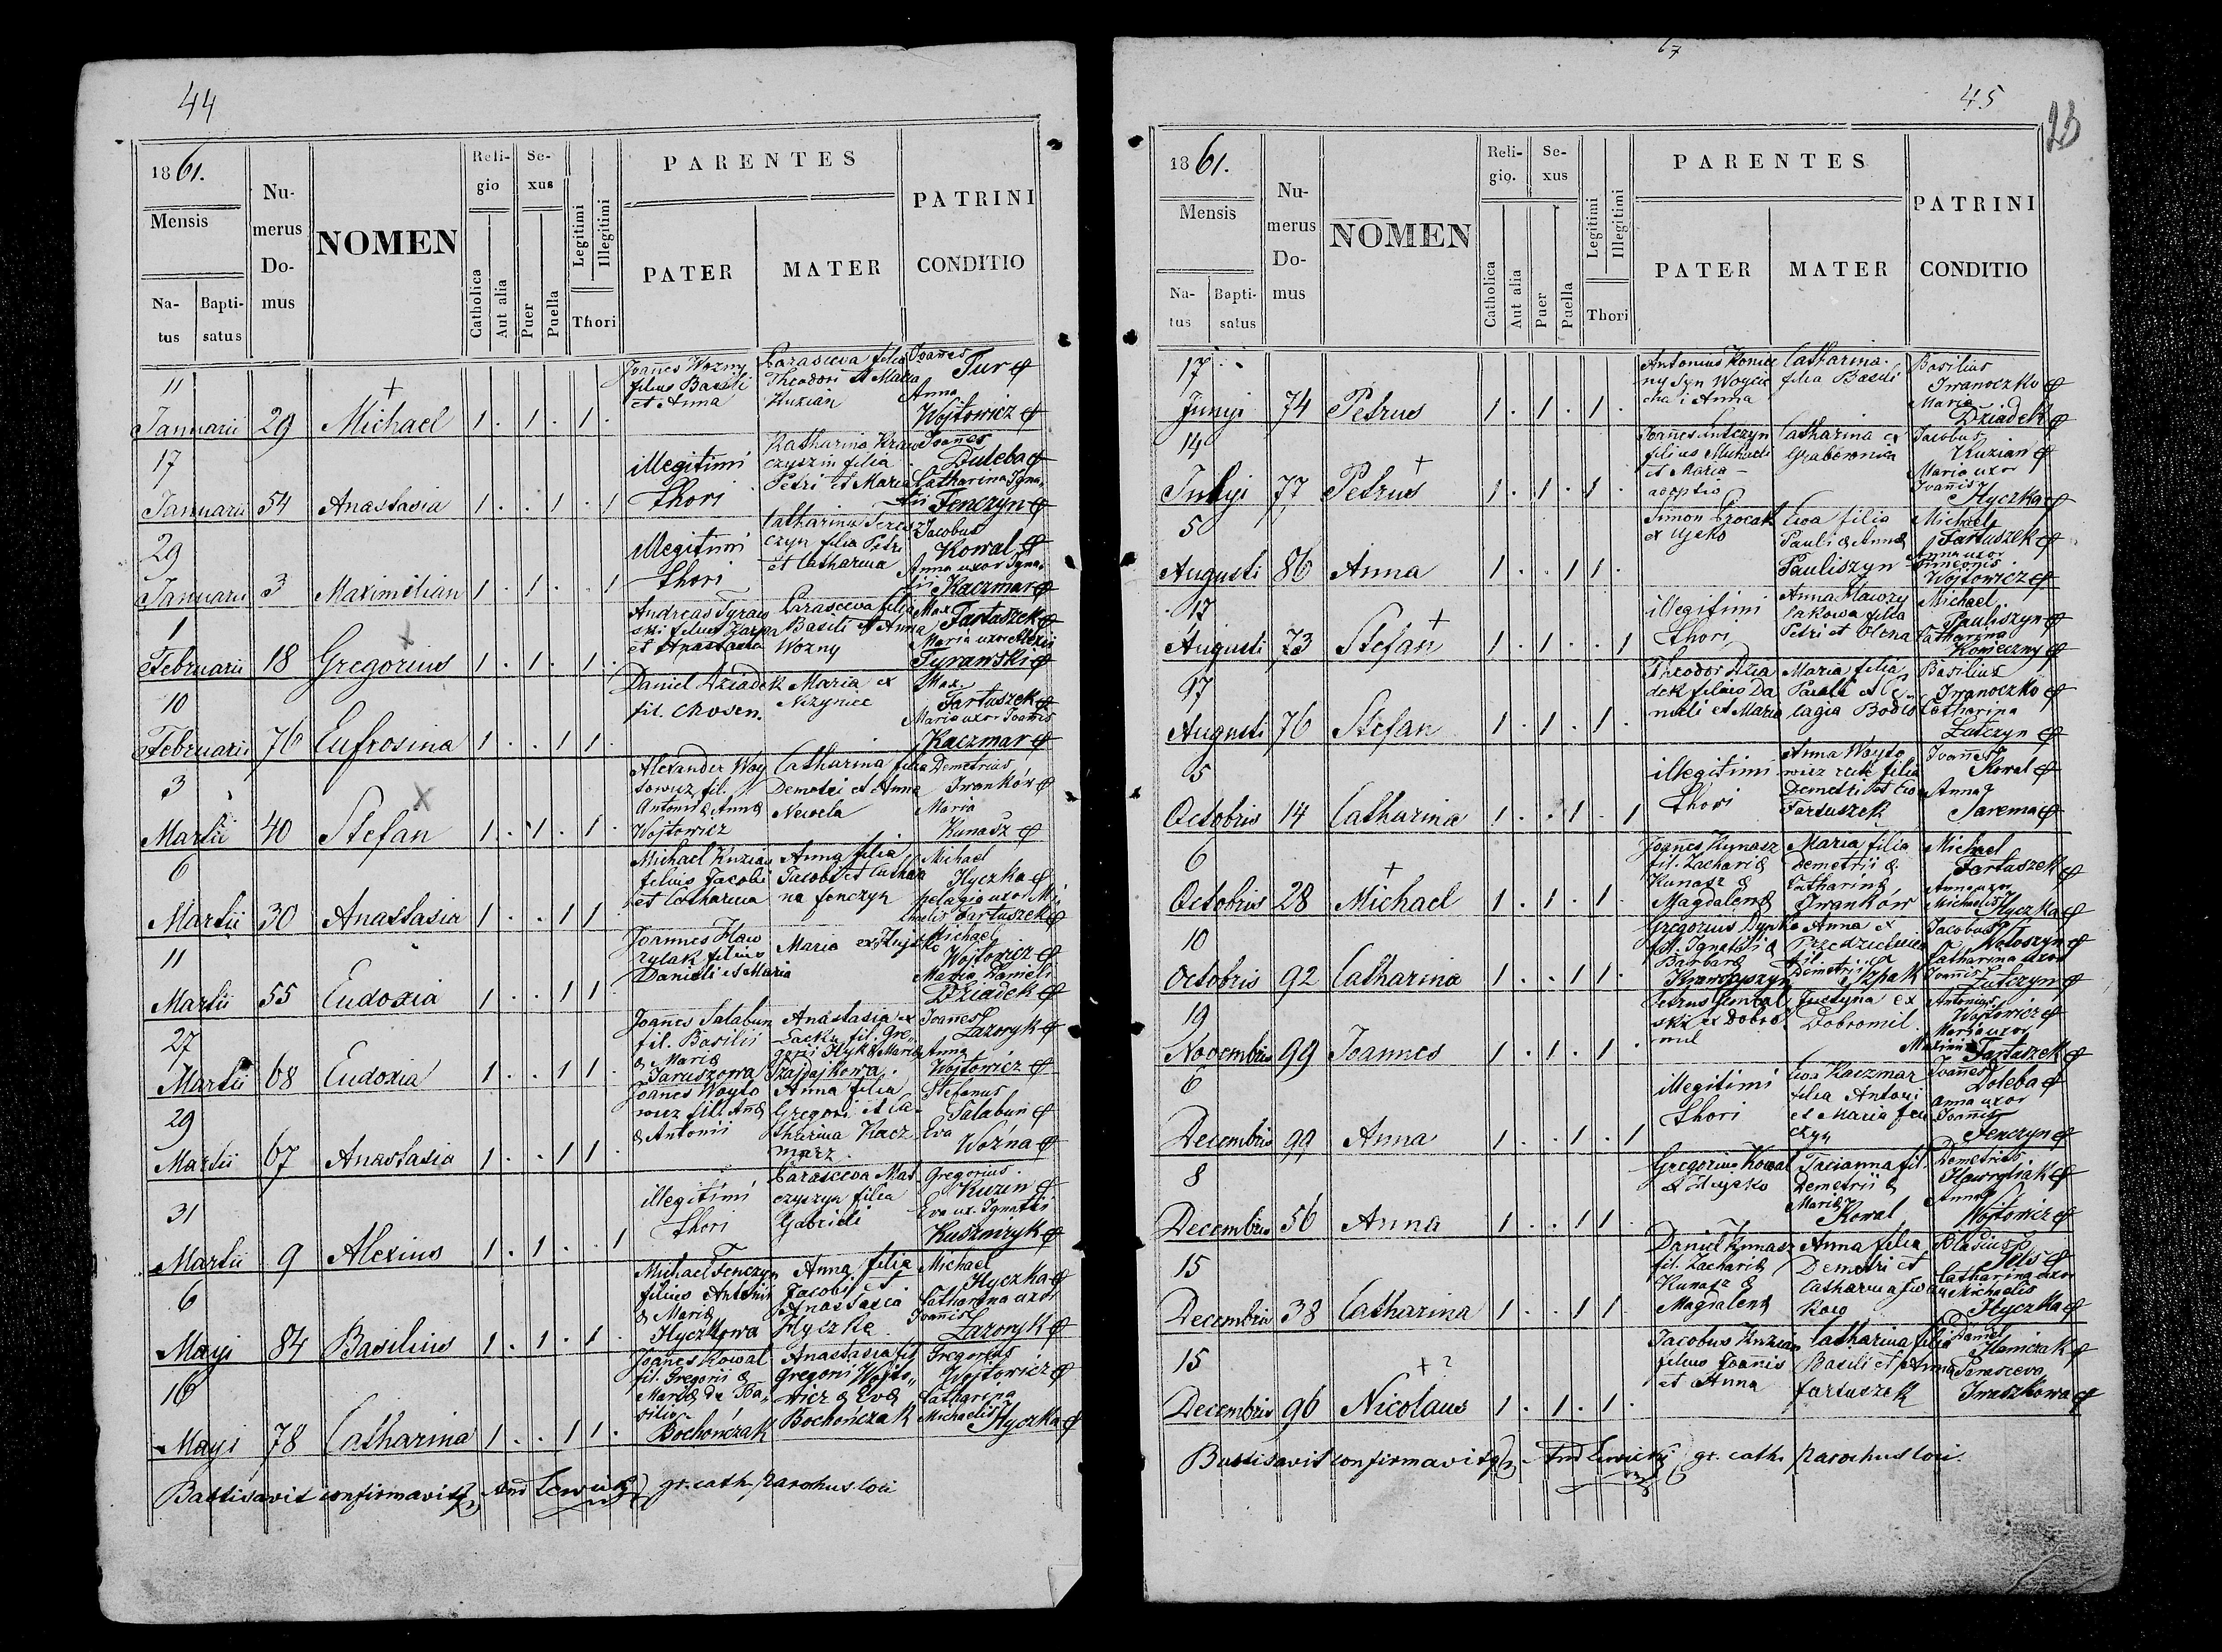 44
1861.
Mensis
Na-
tus
Bapti-
satus
Nu-
merus
Do-
mus
NOMEN
Reli-
gio
Catholica
Aut alia
Se-
xus
Puer
Puella
Legitimi
Illegitimi
Thori
PARENTES
PATER
MATER
PATRINI
CONDITIO
11
Januarii 29 Michael 1 . 1 . 1 .
Joanes Wozny
filius Basili
et Anna
Parasceva filia
Theodori et Maria
Kuzian
Joañes
Tur
Anna
Wojtowicz
17
Januarii 54 Anastasia 1 . . 1 . 1
illegitimi
thori
Katharina Kraw
czyszin filia
Petri et Maria
Joanes
Duleba
Catharina Igna-
tii Fenczyn
29
Januarii 3 Maximilian 1 . 1 . . 1
illegitimi
thori
Catharina
czyn filia Petri
et Catharina
Jacobus
Kowal
Anna uxor Igna-
tii Kaczmar
1
Februarii 18 Gregorius 1 . 1 . 1 .
Andreas Tyraw
ski filius
et Anastasia
Parasceva filia
Basili et Anna
Wozny
Max Fartuszek
Maria uxor Alexii
Tyrawski
10
Februarii 76 Eufrosina 1 . . 1 1 .
Daniel Dziadek
fil.
Maria ex
Nizynice
Max.
Fartuszek
Maria uxor Joannis
Kaczmar
3
Martii 40 Stefan 1 . 1 . 1 .
Alexander Woy
towicz fil.
Antonii & Anna
Wojtowicz
Catharina filia
Demetri et Anna
Newela
Demetrius
Iwanków
Maria
Kunasz
6
Martii 30 Anastasia 1 . . 1 1 .
Michael Kuzian
filius Jacobi
et Catharina
Anna filia
Jacobi et Catha
na fenczyn
Michael
Hyczka
pelagia uxor Mi
chaelis Fartuszek
11
Martii 55 Eudoxia 1 . . 1 1 .
Joannes Haw
rylak filius
Danieli et Maria
Maria ex
Michael
Wojtowicz
Maria Danieli
Dziadek
27
Martii 68 Eudoxia 1 . . 1 1 .
Joañes Salabun
fil. Basilii
& Maria
Jaruszowa
Anastasia ex
Lacku fil. Gre-
gorii Hyk & Maria
Szajdajkowa
Joañes
Lazoryk
Anna
Wojtowicz
29
Martii 67 Anastasia 1 . . 1 1 .
Joanes Woyto
wicz fill Anna
& Antonii
Anna filia
Gregori et Ca-
tharina Kacz
marz
Stefanus
Salabun
Eva
Wozna
31
Martii 9 Alexius 1 . 1 . . 1
illegitimi
thori
Parasceva Mas
czyszyn filia
Gabrieli
Gregorius
Kuzin
Eva ux. Ignatii
Kuszmryk
6
Mayi 84 Basilius 1 . 1 . 1 .
Michael Fenczyn
filius Antonii
& Maria
Hyczkowa
Anna filia
Jacobi et
Anastasia
Hyczka
Michael
Hyczka
Catharina uxor
Joannis
Lazoryk
16
Mayi 78 Catharina 1 . . 1 1 .
Joanes Kowal
fil. Gregorii &
Maria de Ba-
silio
Bochończak
Anastasia fil
Gregorii Wojto-
wicz & Eva
Bochończak
Gregorius
Wojtowicz
Catharina
Michaelis Hyczka
Baptisavit confirmavit And Lewicki gr. cath. parochus loci
67
45
23
1861.
Mensis
Na-
tus
Bapti-
satus
Nu-
merus
Do-
mus
NOMEN
Reli-
gio.
Catholica
Aut alia
Se-
xus
Puer
Puella
Legitimi
Illegitimi
Thori
PARENTES
PATER
MATER
PATRINI
CONDITIO
17
Junyi 74 Petrus 1 . 1 . 1 .
Antonius Koniec
ny Syn Woycie
cha i Anna
Catharina
filia Basili
Basilius
Iwanoczko
Maria
Dziadek
14
Julyi 77 Petrus 1 . 1 . 1 .
Joañes Lutczyn
filius Michaeli
et Maria
adoptio
Catharina ex
Grabownica
Jacobus
Kuzian
Maria uxor
Joannis
Hyczka
5
Augusti 86 Anna 1 . . 1 1 .
Simon
ex Ujsko
Ewa filia
Pauli & Anna
Pauliszyn
Michael
Fartuszek
Anna uxor
Simeonis
Wojtowicz
17
Augusti 73 Stefan 1 . 1 . . 1
illegitimi
thori
Anna Hawry
lakowa filia
Petri et Olena
Michael
Pauliszyn
Catharina
Konieczny
17
Augusti 76 Stefan 1 . 1 . 1 .
Theodor Dzia
dek filius Da
nieli et Maria
Maria filia
Pauli et Pe-
lagia
Basilius
Iwanoczko
Catharina
Lutczyn
5
Octobris 14 Catharina 1 . . 1 . 1
illegitimi
thori
Anna Woyto
wicz filia
Demetri et Ewa
Fartuszek
Joannes
Kowal
Anna
Jarema
6
Octobris 28 Michael 1 . 1 . 1 .
Joanes Kunasz
fil. Zacharia
Kunasz &
Magdalena
Maria filia
Demetrii &
Catharina
Iwankow
Michael
Fartuszek
Anna uxor
Michaelis
Hyczka
10
Octobris 92 Catharina 1 . . 1 1 .
Gregorius Dyrko
fil. Ignatii &
Barbara
Krawczyszyn
Anna ex
fil.
Demetrii
Szpak
Jacobus
Woloszyn
Catharina uxor
Joannis
Lutczyn
19
Novembris 99 Joannes 1 . 1 . 1 .
Petrus
ski ex Dobro
mil
Justyna ex
Dobromil
Antonius
Wojtowicz
Maria uxor
Maximi Fartuszek
6
Decembris 99 Anna 1 . . 1 . 1
illegitimi
thori
Ewa Kaczmar
filia Antoni
et Maria fen
czyn
Joannes
Doleba
Anna uxor
Joannis
Fenczyn
8
Decembris 56 Anna 1 . . 1 1 .
Gregorius Kowal
Tacianna fil.
Demetrii &
Maria
Kowal
Demetrius
Hawryliak
Anna
Wojtowicz
15
Decembris 38 Catharina 1 . . 1 1 .
Daniel Kunasz
fil. Zacharia
Kunasz &
Magdalena
Anna filia
Demetri et
Catharina Iwan
kow
Blasius
Catharina uxor
Michaelis
Hyczka
15
Decembris 96 Nicolaus 1 . 1 . 1 .
Jacobus Kuzian
filius Joannis
et Anna
Catharina filia
Basili et Anna
fartuszek
Daniel
Hamczak
Parasceva
Iwaszkowa
Baptisavit confirmavit And Lewicki gr. cath. parochus loci.